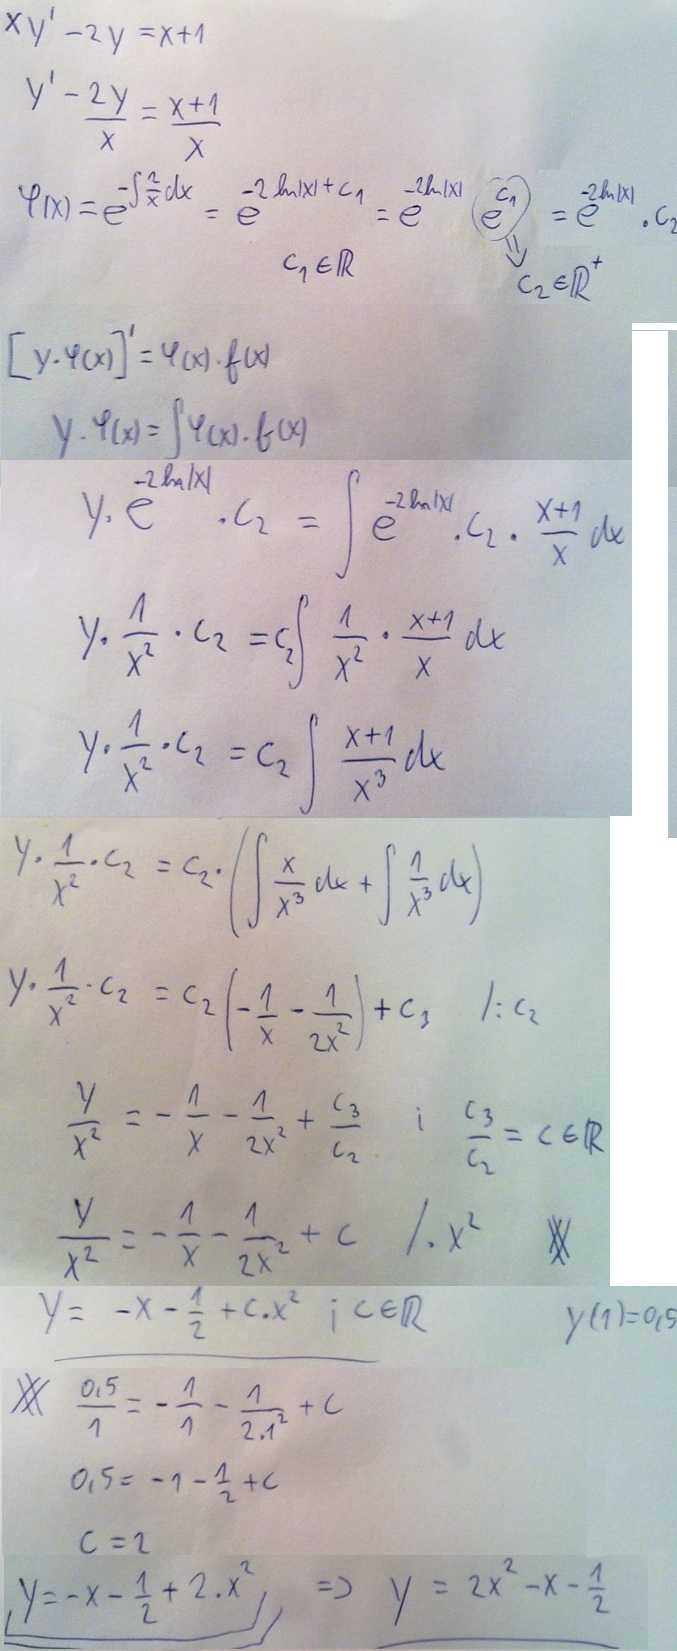 xy' - 2y = x+1
y' - 2y/x = x+1/x
φ(x) = e^(-∫2/x dx) = e^(-2ln|x|+c₁) = e^(-2ln|x|) e^(c₁) = e^(-2ln|x|) · c₂
c₁∈ℝ ⇓ c₂∈ℝ⁺
[y·φ(x)]' = φ(x)·f(x)
y·φ(x) = ∫φ(x)·f(x)
y·e^(-2ln|x|)·c₂ = ∫ e^(-2ln|x|)·c₂· x+1/x dx
y· 1/x² ·c₂ = c₂∫ 1/x² · x+1/x dx
y· 1/x² ·c₂ = c₂ ∫ x+1/x³ dx
y· 1/x² ·c₂ = c₂·(∫ x/x³ dx + ∫ 1/x³ dx)
y· 1/x² ·c₂ = c₂(-1/x - 1/2x²) + c₃ /:c₂
y/x² = -1/x - 1/2x² + c₃/c₂ ; c₃/c₂ = c∈ℝ
y/x² = -1/x - 1/2x² + c /·x² ※
y = -x - 1/2 + c·x² ; c∈ℝ y(1)=0,5
※ 0,5/1 = -1/1 - 1/2·1² + c
0,5 = -1 - 1/2 + c
c = 2
y = -x - 1/2 + 2·x² ⇒ y = 2x² - x - 1/2